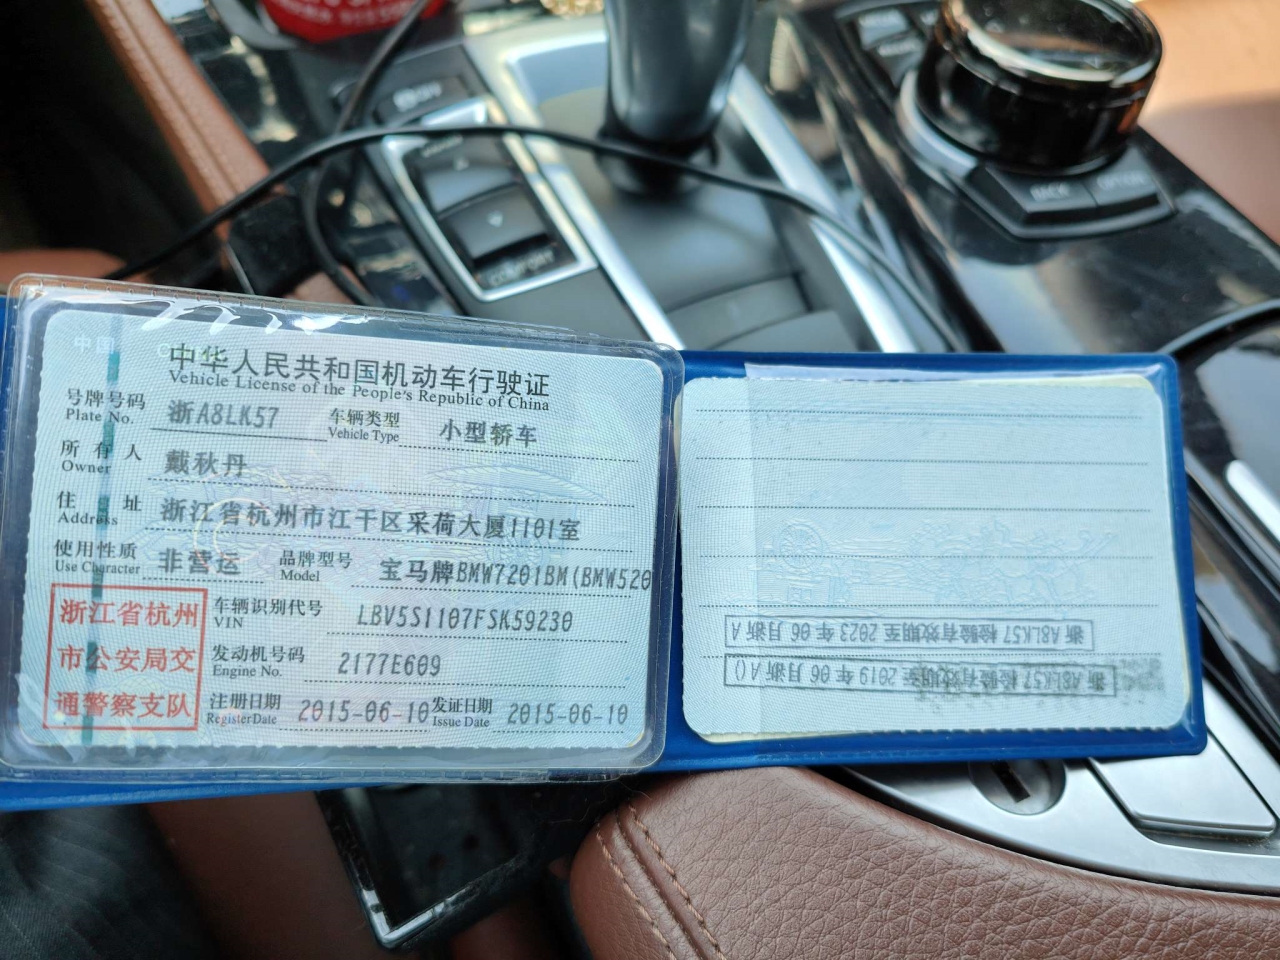 中华人民共和国机动车行驶证
Vehicle License of the People's Republic of China
号牌号码 浙A8LK57 车辆类型 小型轿车
Plate No. Vehicle Type
所有人 戴秋丹
Owner
住址 浙江省杭州市江干区采荷大厦1101室
Address
使用性质 非营运 品牌型号 宝马牌BMW7201BM(BMW520
Use Character Model
浙江省杭州
市公安局交
通警察支队
车辆识别代号 LBV5S1107FSK59230
VIN
发动机号码 2177E609
Engine No.
注册日期 2015-06-10 发证日期 2015-06-10
Register Date Issue Date
浙A8LK57 检验有效期至 2023 年 06 月浙 A
浙A8LK57 检验有效期至 2019 年 06 月浙 A()
BACK OPTION
COMFORT
OFF